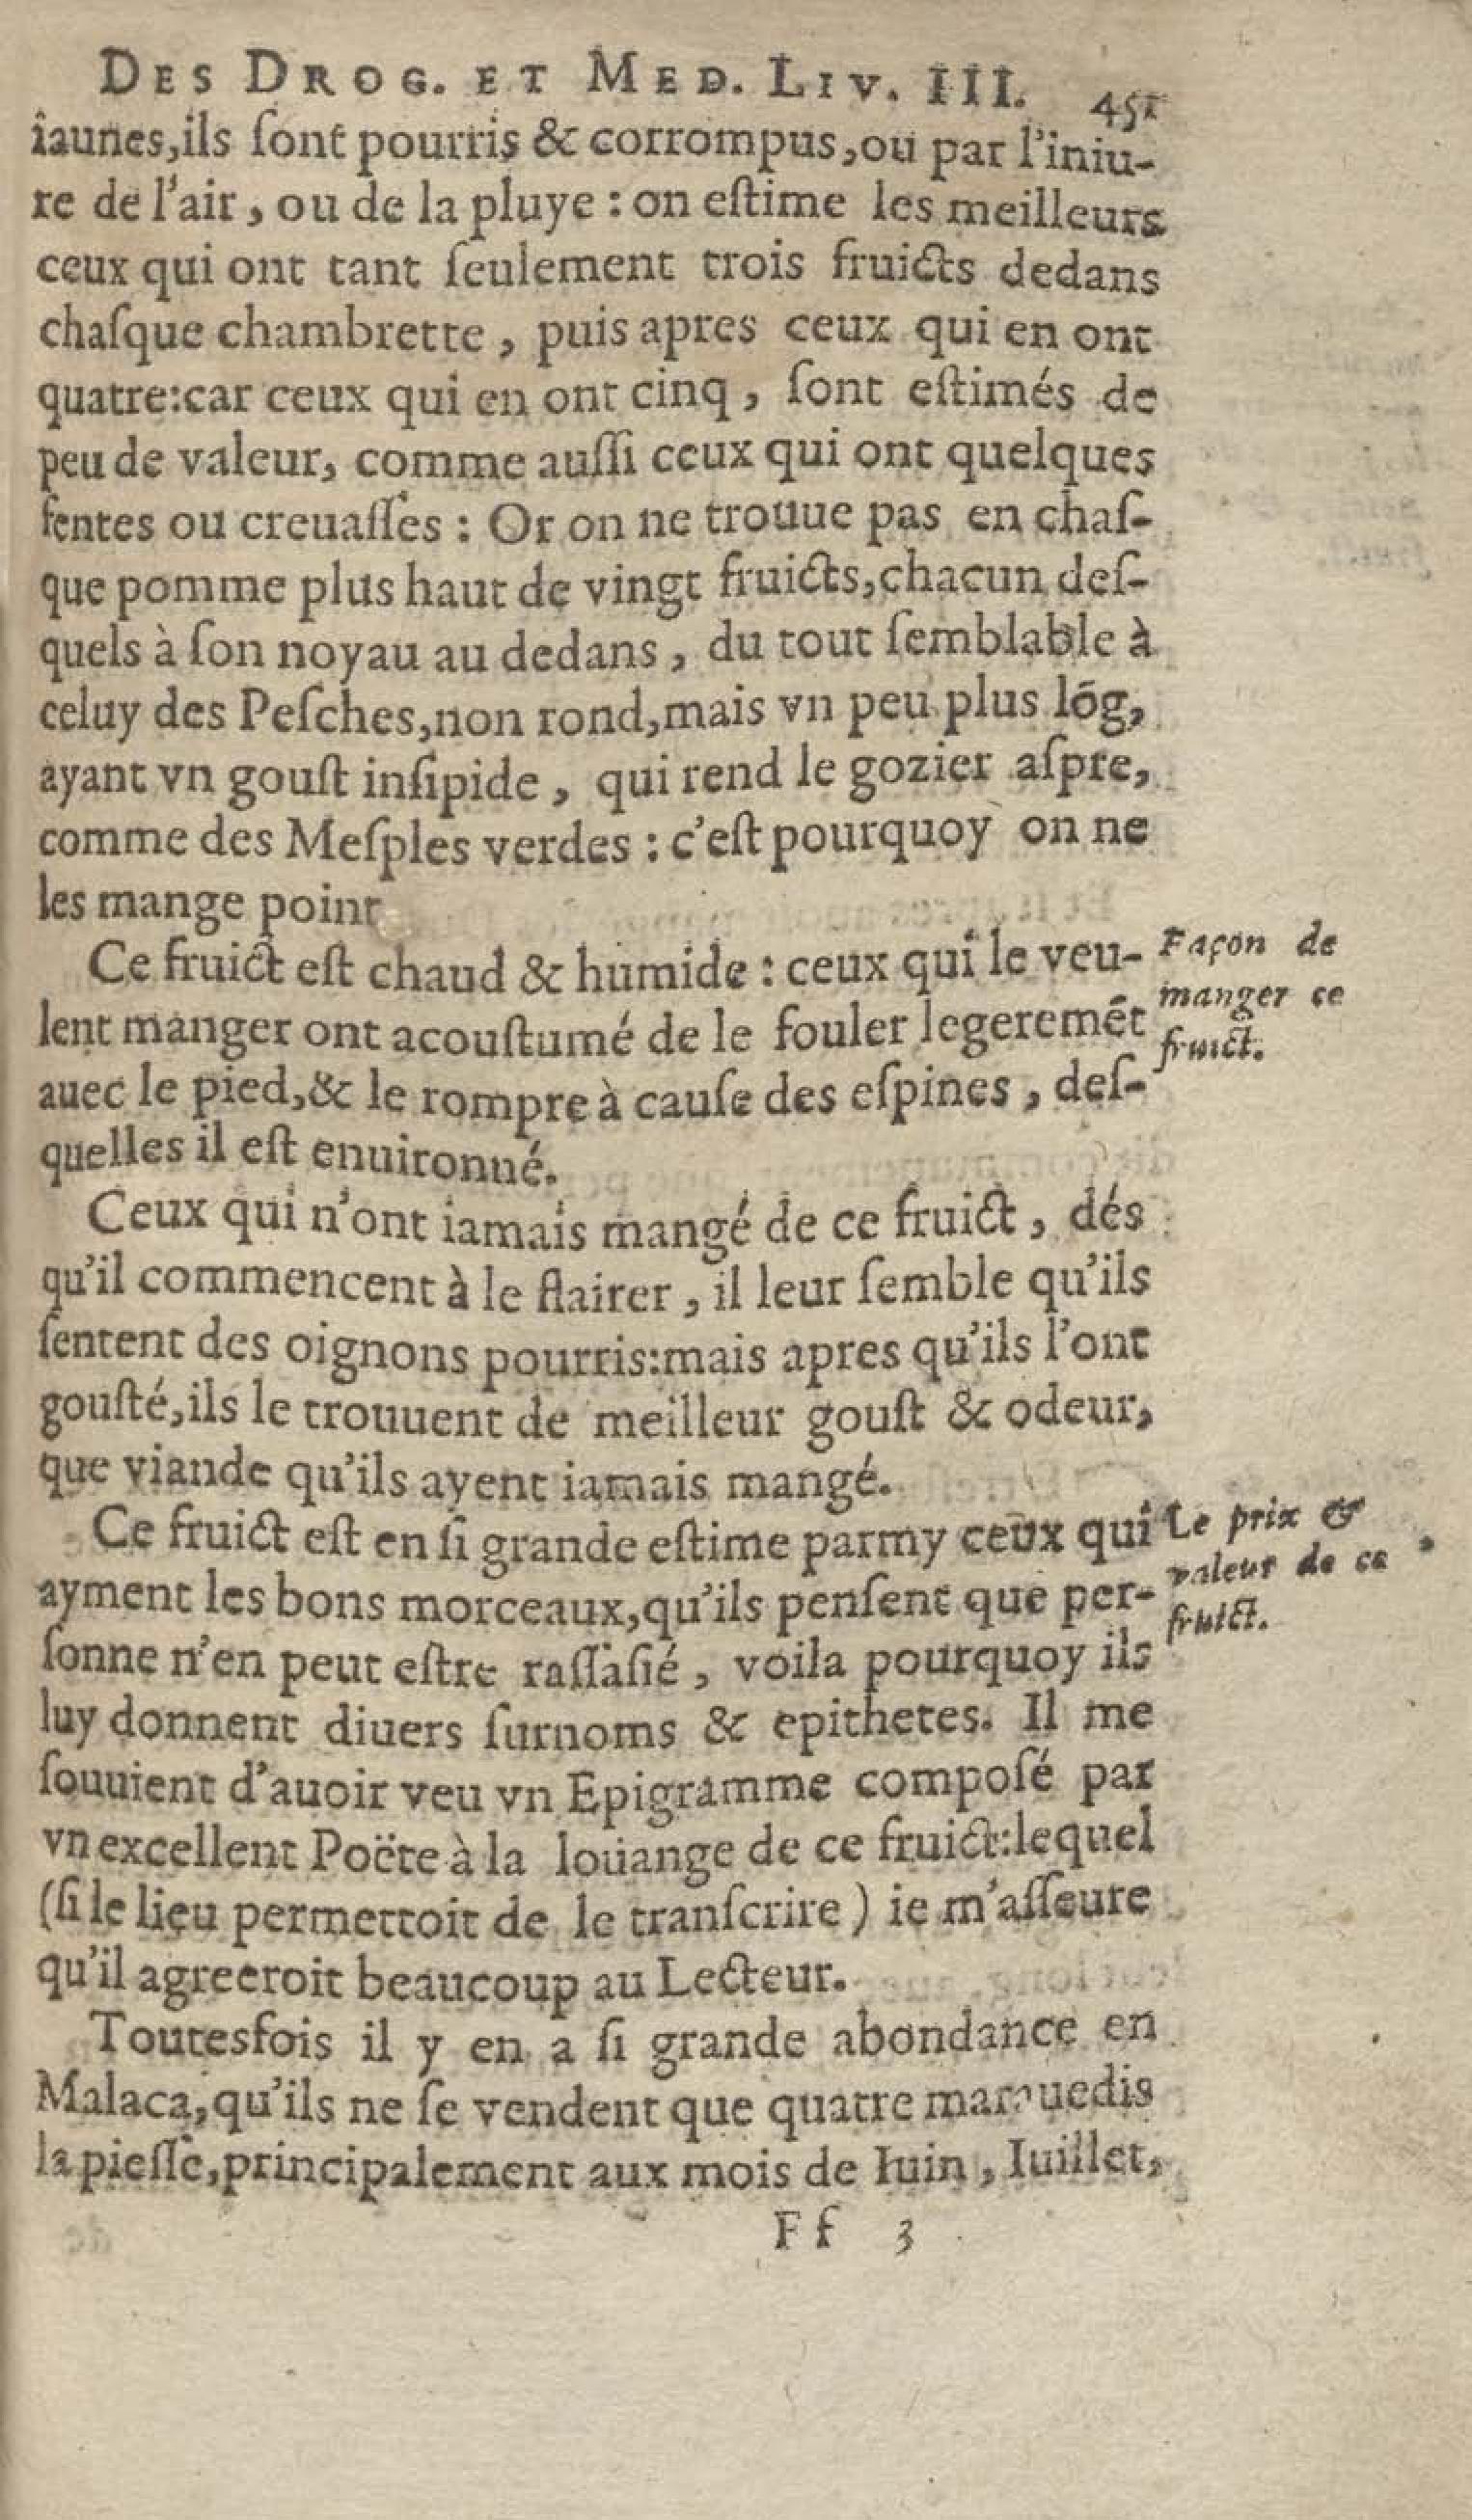 DES DROG. ET MED. LIV. III. 451
iaunes,ils ſont pourris & corrompus,ou par l'iniu-
re de l'air, ou de la pluye : on eſtime les meilleurs
ceux qui ont tant ſeulement trois fruicts dedans
chaſque chambrette, puis apres ceux qui en ont
quatre:car ceux qui en ont cinq, ſont eſtimés de
peu de valeur, comme auſſi ceux qui ont quelques
fentes ou creuaſſes : Or on ne trouue pas en chaſ-
que pomme plus haut de vingt fruicts,chacun deſ-
quels à ſon noyau au dedans, du tout ſemblable à
celuy des Peſches,non rond,mais vn peu plus lõg,
ayant vn gouſt inſipide, qui rend le gozier aſpre,
comme des Meſples verdes : c'eſt pourquoy on ne
les mange point
Ce fruict eſt chaud & humide : ceux qui le veu-
lent manger ont acouſtumé de le fouler legeremẽt
auec le pied,& le rompre à cauſe des eſpines, deſ-
quelles il eſt enuironné.
Façon de
manger ce
fruict.
Ceux qui n'ont iamais mangé de ce fruict, dés
qu'il commencent à le flairer, il leur ſemble qu'ils
ſentent des oignons pourris:mais apres qu'ils l'ont
gouſté,ils le trouuent de meilleur gouſt & odeur,
que viande qu'ils ayent iamais mangé.
Ce fruict eſt en ſi grande eſtime parmy ceux qui
ayment les bons morceaux,qu'ils penſent que per-
ſonne n'en peut eſtre raſſaſié, voila pourquoy ils
luy donnent diuers ſurnoms & epithetes. Il me
ſouuient d'auoir veu vn Epigramme compoſé par
vn excellent Poëte à la loüange de ce fruict:lequel
(ſi le lieu permettoit de le tranſcrire) ie m'aſſeure
qu'il agreeroit beaucoup au Lecteur.
Le prix &
valeur de ce
fruict.
Toutesfois il y en a ſi grande abondance en
Malaca,qu'ils ne ſe vendent que quatre marauedis
la pieſſe,principalement aux mois de Iuin, Iuillet,
Ff 3